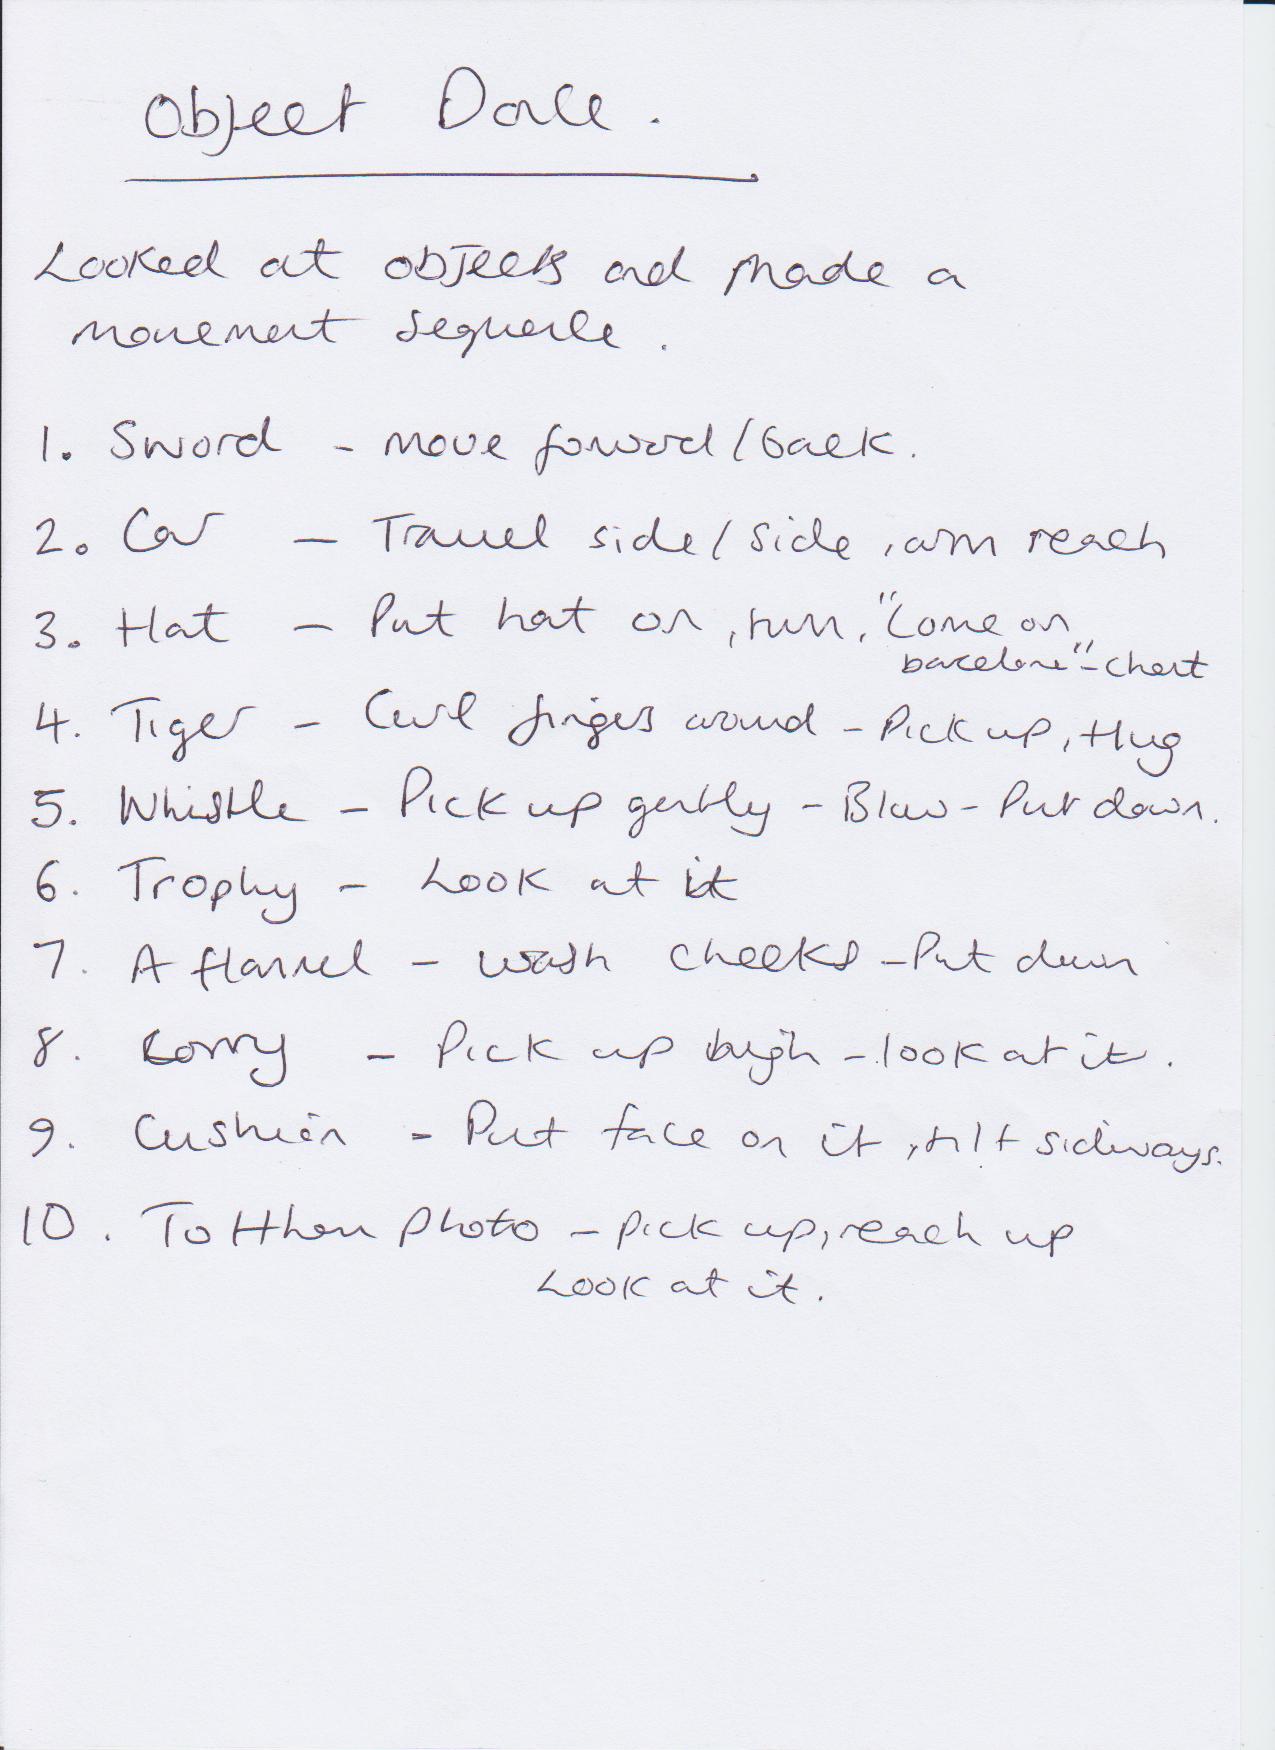 Object Dance.
Looked at objects and made a
movement sequence.
1. Sword - move forward/back.
2. Car - Travel side/side, arm reach
3. Hat - Put hat on, turn, "Come on
barcelona" - chant
4. Tiger - Curl fingers around - Pick up, Hug
5. Whistle - Pick up gently - Blow - Put down.
6. Trophy - Look at it
7. A flannel - wash cheeks - Put down
8. Lorry - Pick up high - look at it.
9. Cushion - Put face on it, tilt sideways.
10. Tottham photo - pick up, reach up
Look at it.